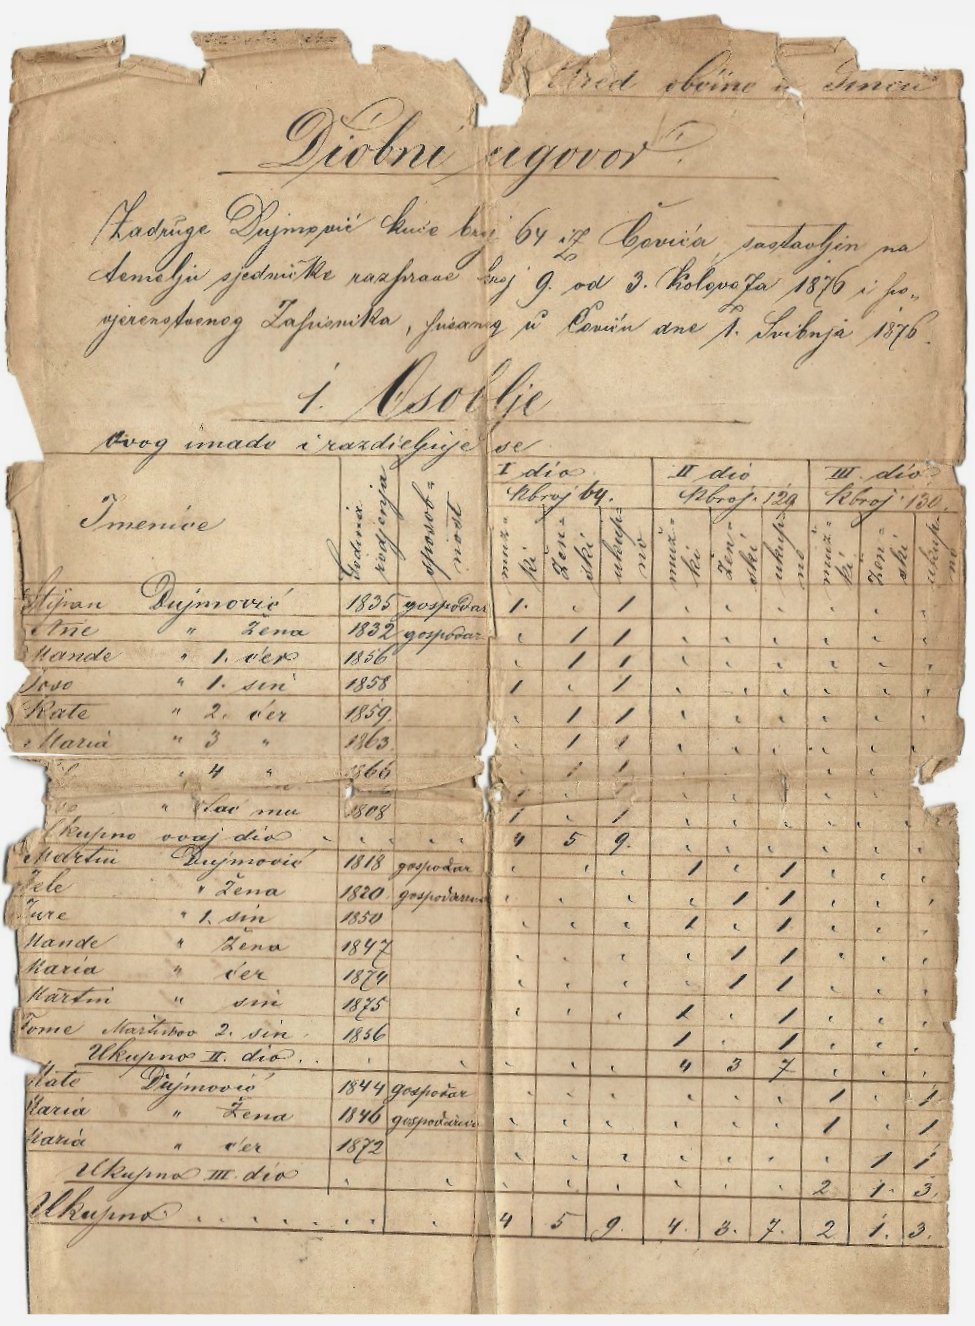 Ured obćine u
Diobni ugovor
Zadruge Dujmović kuće broj 64 iz Čovića, sastavljen na
temelju sjedničke razprave broj 9. od 3. Kolovoza 1876 i po-
vjerenstvenog Zapisnika, pisanog u Čoviću dne 1. Svibnja 1876.
1. Osoblje
ovog imado i razdieljuje se
Imenice Godina rodjenja sposobnost I dio Kbroj 64. II dio Kbroj. 129 III. dio Kbroj. 130.
muž-ki žen-ski ukup-no muž-ki žen-ski ukup-no muž-ki žen-ski ukup-no
Stipan Dujmović 1835 gospodar 1. 1
Ane " Žena 1832 gospodar 1 1
Mande " 1. ćer 1856 1 1
Joso " 1. sin 1858 1 1
Kate " 2. ćer 1859 1 1
Maria " 3 " 1863 1 1
" 4 " 1866 1 1
" 1808 1 1
Ukupno ovaj dio 4 5 9.
Martin Dujmović 1818 gospodar 1 1
Jele " Žena 1820 1 1
Jure " 1. sin 1850 1 1
Mande " Žena 1847 1 1
Maria " ćer 1874 1 1
Martin " sin 1875 1 1
Tome 2. sin 1856 1 1
Ukupno II. dio 4 3 7
Mato Dujmović 1844 gospodar 1 1
Maria " Žena 1846 1 1
Maria " ćer 1872 1 1
Ukupno III. dio 2 1. 3.
Ukupno 4 5 9. 4. 3. 7. 2 1. 3.